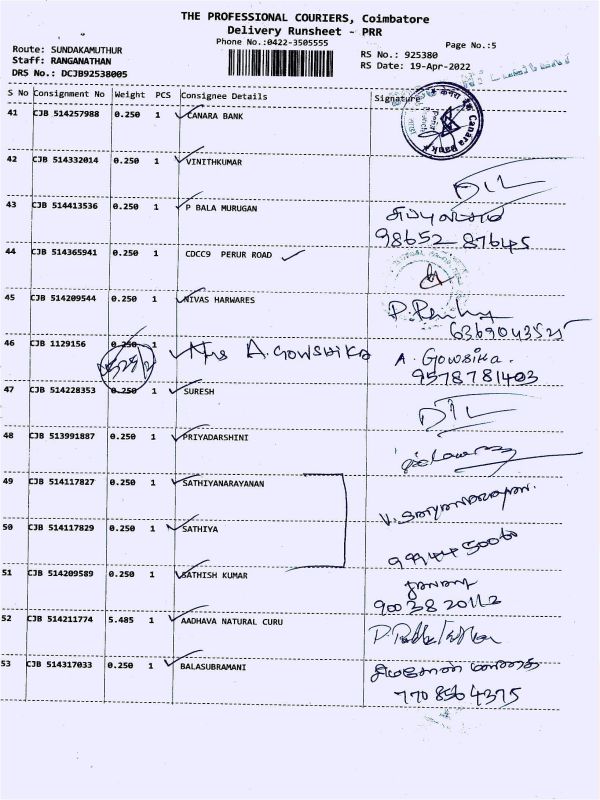 THE PROFESSIONAL COURIERS, Coimbatore
Delivery Runsheet - PRR
Phone No.:0422-3505555
Page No.:5
Route: SUNDAKAMUTHUR
Staff: RANGANATHAN
DRS No.: DCJB92538005
RS No.: 925380
RS Date: 19-Apr-2022
S No Consignment No Weight PCS Consignee Details Signature
41 CJB 514257988 0.250 1 CANARA BANK
Canara Bank
42 CJB 514332014 0.250 1 VINITHKUMAR
43 CJB 514413536 0.250 1 P BALA MURUGAN
98652 87645
44 CJB 514365941 0.250 1 CDCC9 PERUR ROAD
45 CJB 514209544 0.250 1 NIVAS HARWARES
46 CJB 1129156 0.250 1 Mrs A.GOWSHIKA A. Gowsika.
9578781403
47 CJB 514228353 0.250 1 SURESH
48 CJB 513991887 0.250 1 PRIYADARSHINI
49 CJB 514117827 0.250 1 SATHIYANARAYANAN
50 CJB 514117829 0.250 1 SATHIYA
51 CJB 514209589 0.250 1 SATHISH KUMAR
52 CJB 514211774 5.485 1 AADHAVA NATURAL CURU
53 CJB 514317033 0.250 1 BALASUBRAMANI
7708564375